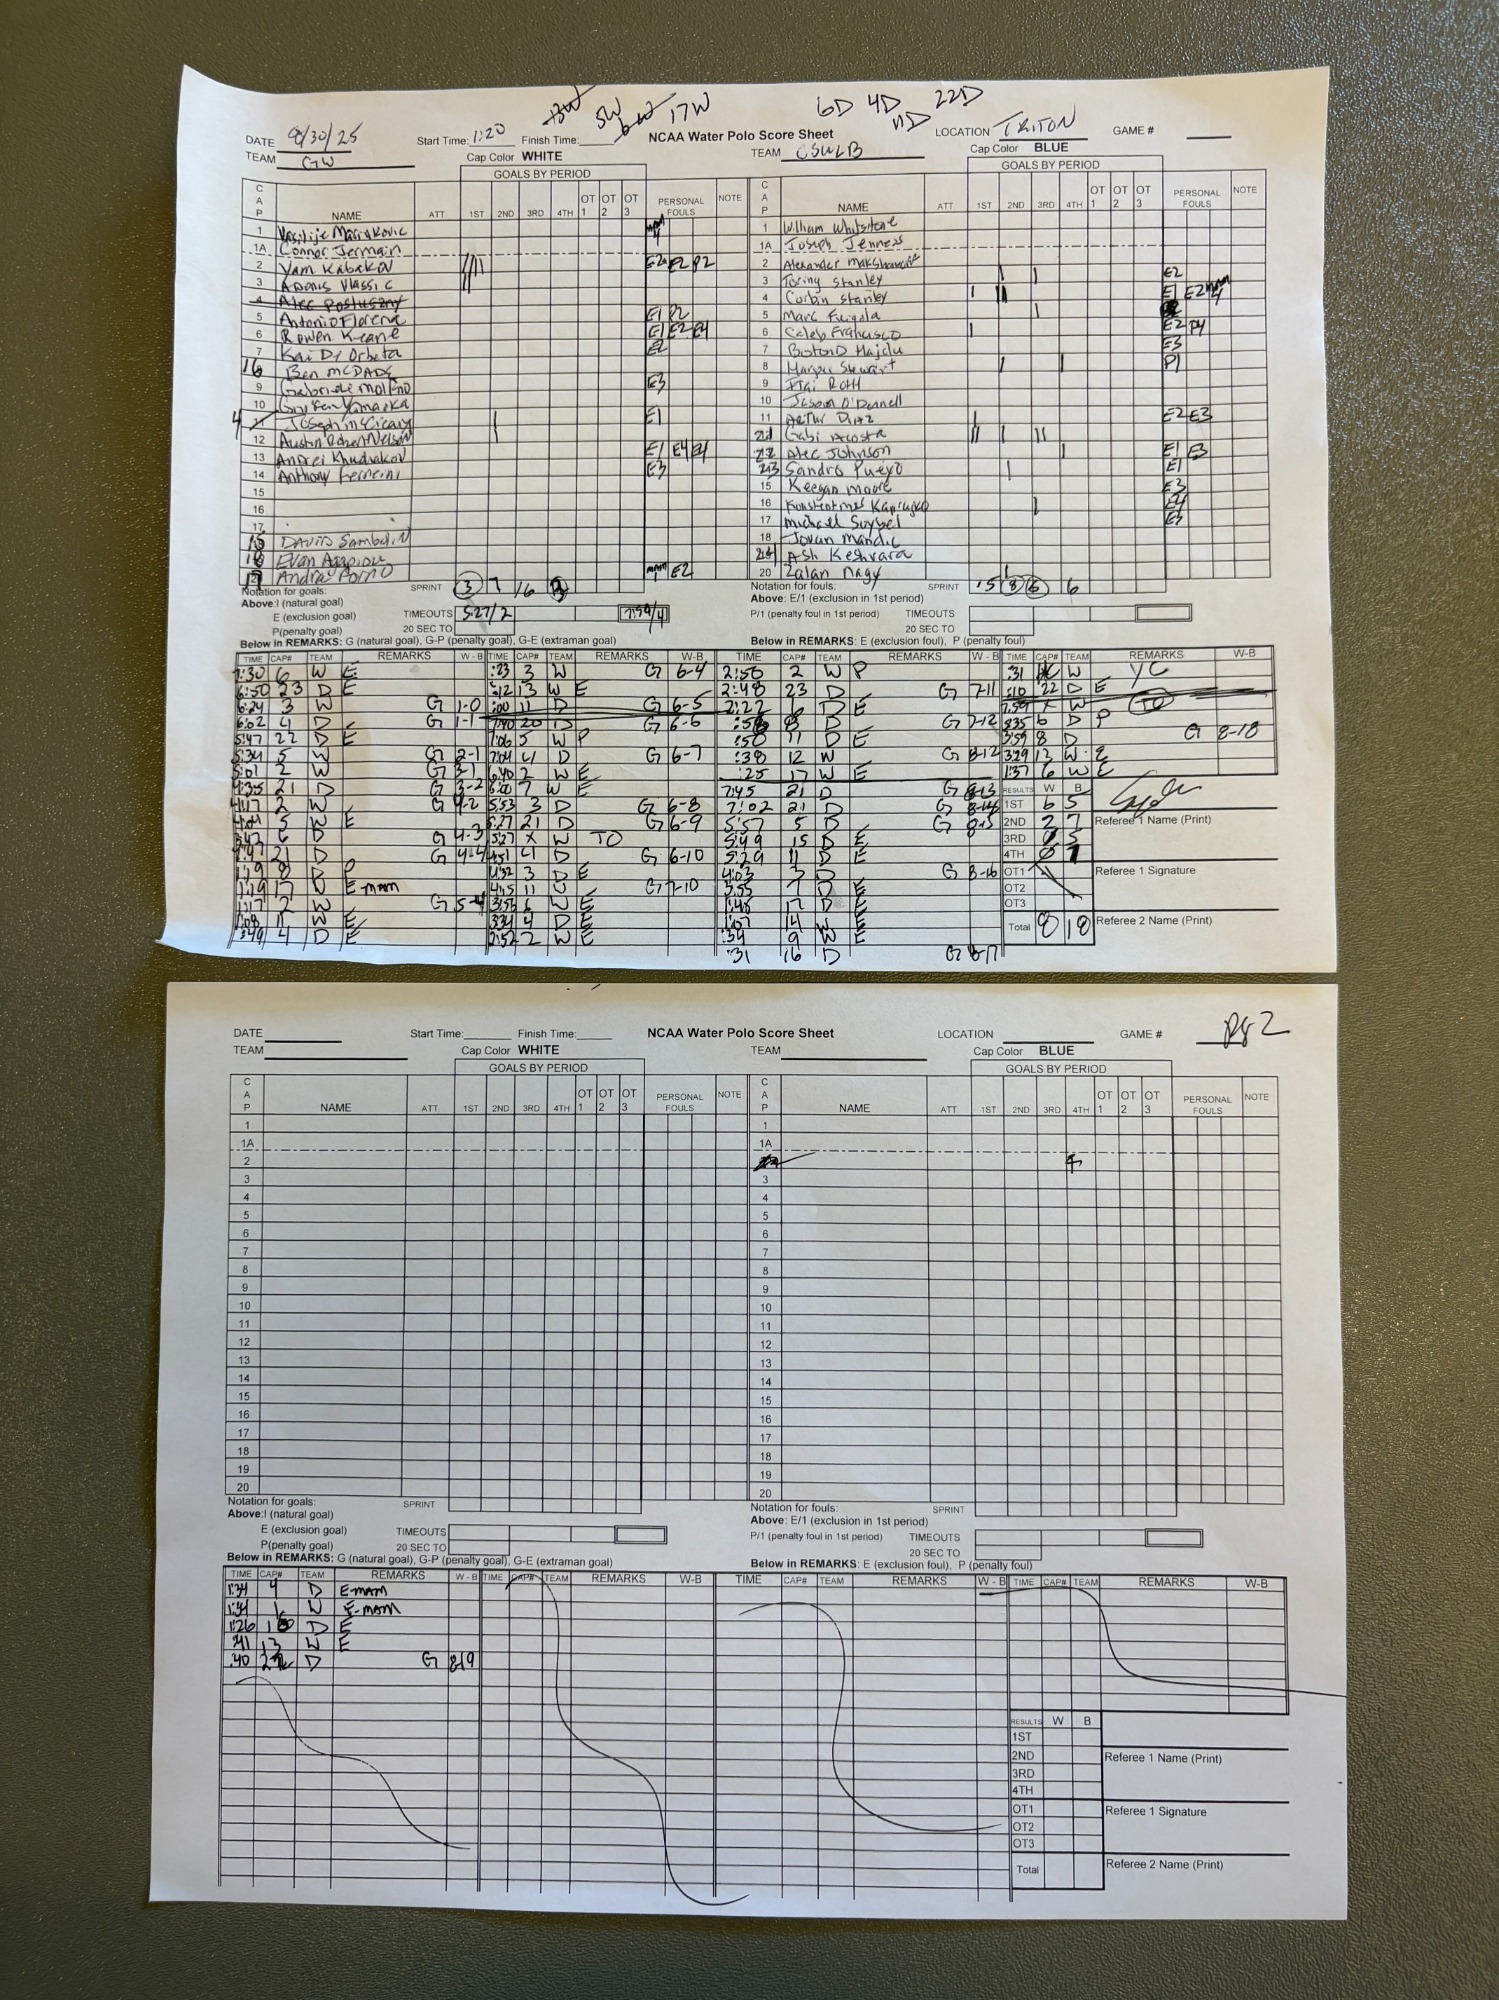 5W 17W 6D 4D 11D 22D
DATE 8/30/25 Start Time: 1:20 Finish Time: NCAA Water Polo Score Sheet LOCATION TRITON GAME #
TEAM GW Cap Color WHITE TEAM CSULB Cap Color BLUE
GOALS BY PERIOD GOALS BY PERIOD
CAP NAME ATT 1ST 2ND 3RD 4TH OT 1 OT 2 OT 3 PERSONAL FOULS NOTE CAP NAME ATT 1ST 2ND 3RD 4TH OT 1 OT 2 OT 3 PERSONAL FOULS NOTE
1 1 William Whitstone
1A Connor Jermain 1A Joseph Jenness
2 Yam Kabakov E2 E2 P2 2 Alexander
3 Adonis Vlassic 3 Toriny Stanley E2
4 Alec Postuszny 4 Corbin Stanley E1 E2 mam 4
5 Antonio Florena E1 P2 5 Marc
6 Rowen Keane E1 E2 E4 6 Caleb Francisco E2 P4
7 Kai E2 7 E3
16 Ben McDade 8 Stewart P1
9 Gabriele E3 9 Itai Roth
10 Yamaoka 10 Jason O'Donnell
11 Joseph E1 11 Artur Diaz E2 E3
12 Austin Nelson 21 Gabi Acosta
13 Andrei Khudiakov E1 E4 E4 22 Alec Johnson E1 E3
14 Anthony Ferreini E3 23 Sandro Pueyo E1
15 15 Keegan Moore E3
16 16 E4
17 17 Michael E3
15 David 18 Jovan Mandic
18 Evan Agapiou Ash Keshvara
17 Andre Porno mam 1 E2 20 Zalan Nagy
Notation for goals: SPRINT 3 7 16 Notation for fouls: SPRINT 15 8 6 6
Above: I (natural goal) Above: E/1 (exclusion in 1st period)
E (exclusion goal) TIMEOUTS 5:27/2 7:59/4 P/1 (penalty foul in 1st period) TIMEOUTS
P(penalty goal) 20 SEC TO 20 SEC TO
Below in REMARKS: G (natural goal), G-P (penalty goal), G-E (extraman goal) Below in REMARKS: E (exclusion foul), P (penalty foul)
TIME CAP# TEAM REMARKS W - B TIME CAP# TEAM REMARKS W-B TIME CAP# TEAM REMARKS W - B TIME CAP# TEAM REMARKS W-B
7:30 6 W E :23 3 W G 6-4 2:50 2 W P :31 W YC
6:50 23 D E :12 13 W E 2:48 23 D G 7-11 :10 22 D E
6:24 3 W G 1-0 :00 11 D G 6-5 2:22 6 D E 7:59 X W TO
6:02 4 D G 1-1 7:40 20 D G 6-6 8 D G 7-12 6 D P
5:47 22 D E 7:06 5 W P :50 11 D E 3:59 8 D G 8-18
5:34 5 W G 2-1 7:04 4 D G 6-7 :38 12 W G 8-12 3:29 13 W E
5:01 2 W G 3-1 6:40 2 W E :25 17 W E 1:37 6 W E
4:35 21 D G 3-2 7 W E 7:45 21 D G 8-13 RESULTS W B
4:17 2 W G 4-2 5:53 3 D G 6-8 7:02 21 D G 8-14 1ST 6 5
4:04 5 W E 5:27 21 D G 6-9 5:57 5 D G 8-15 2ND 2 7 Referee 1 Name (Print)
6 D G 4-3 5:27 X W TO 5:49 15 D E 3RD 0 5
21 D G 4-4 4:51 4 D G 6-10 5:29 11 D E 4TH 0 1
1:19 8 D P 4:32 3 D E 4:03 3 D G 8-16 OT1 Referee 1 Signature
1:19 17 W E-mam 4:15 11 W G 7-10 3:55 7 D E OT2
1:17 2 W G 5-4 3:53 6 W E 1:45 17 D E OT3
1:08 11 W E 3:34 4 D E 1:07 14 W E Total 8 18 Referee 2 Name (Print)
:49 4 D E 2:52 2 W E :34 9 W E
:31 16 D G 8-17
DATE Start Time: Finish Time: NCAA Water Polo Score Sheet LOCATION GAME # Pg 2
TEAM Cap Color WHITE TEAM Cap Color BLUE
GOALS BY PERIOD GOALS BY PERIOD
CAP NAME ATT 1ST 2ND 3RD 4TH OT 1 OT 2 OT 3 PERSONAL FOULS NOTE CAP NAME ATT 1ST 2ND 3RD 4TH OT 1 OT 2 OT 3 PERSONAL FOULS NOTE
1 1
1A 1A
2
3 3
4 4
5 5
6 6
7 7
8 8
9 9
10 10
11 11
12 12
13 13
14 14
15 15
16 16
17 17
18 18
19 19
20 20
Notation for goals: SPRINT Notation for fouls: SPRINT
Above: I (natural goal) Above: E/1 (exclusion in 1st period)
E (exclusion goal) TIMEOUTS P/1 (penalty foul in 1st period) TIMEOUTS
P(penalty goal) 20 SEC TO 20 SEC TO
Below in REMARKS: G (natural goal), G-P (penalty goal), G-E (extraman goal) Below in REMARKS: E (exclusion foul), P (penalty foul)
TIME CAP# TEAM REMARKS W - B TIME CAP# TEAM REMARKS W-B TIME CAP# TEAM REMARKS W - B TIME CAP# TEAM REMARKS W-B
1:34 4 D E-mam
1:34 1 W E-mam
1:26 16 D E
:41 13 W E
:40 22 D G 8-19
RESULTS W B
1ST
2ND Referee 1 Name (Print)
3RD
4TH
OT1 Referee 1 Signature
OT2
OT3
Total Referee 2 Name (Print)